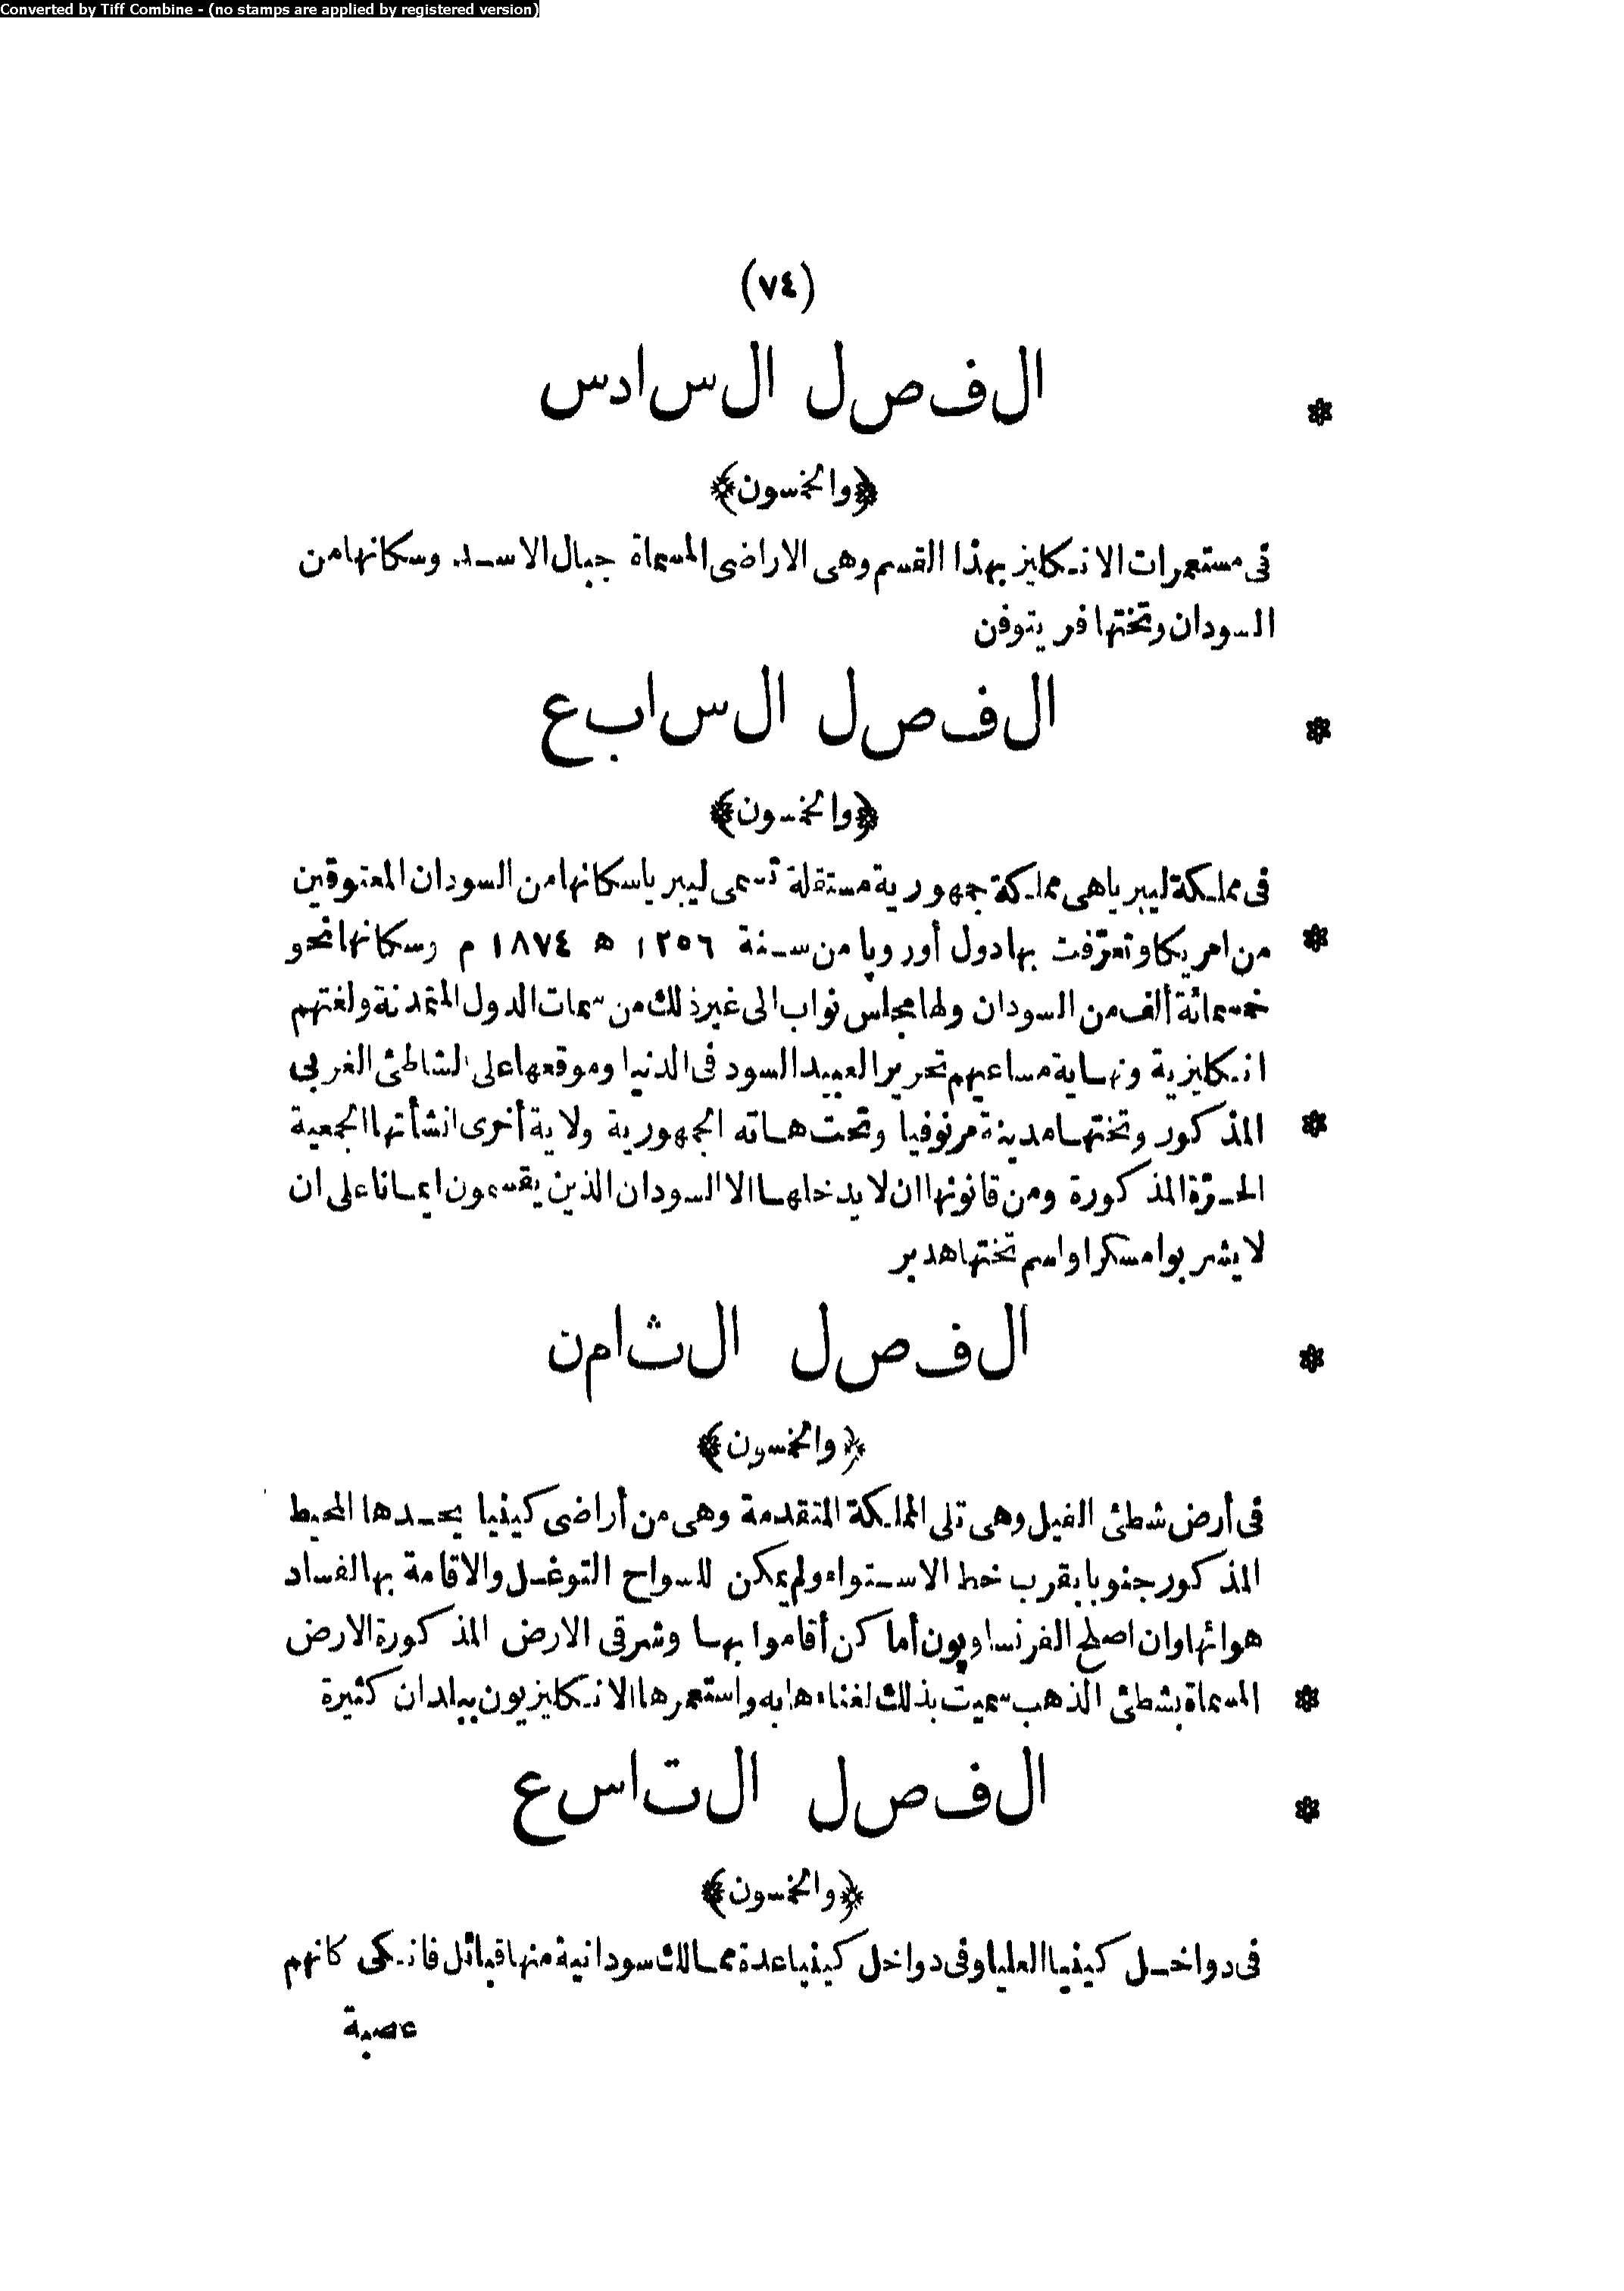 Converted by Tiff Combine - (no stamps are applied by registered version)
(٧٤)
الفصل السادس
﴿والخمسون﴾
فى مستعمرات الانكليز بهذا القسم وهى الاراضى المسماة جبال الاسد. وسكانها من
السودان وتختها فريتوفن
الفصل السابع
﴿والخمسون﴾
فى مملكة ليبريا هى مملكة جمهورية مستقلة تسمى ليبريا سكانها من السودان المعتوقين
من امريكا وتعرّفت بها دول أوروپا من سنة ١٢٥٦ ه ١٨٧٤ م وسكانها نحو
خمسمائة ألف من السودان ولها مجلس نواب الى غير ذلك من سمات الدول المتمدنة ولغتهم
انكليزية ونهاية مساعيهم تحرير العبيد السود فى الدنيا وموقعها على الشاطئ الغربى
المذكور وتختها مدينة مرنوفيا وتحت هاته الجمهورية ولاية أخرى انشأتها الجمعية
الحرّة المذكورة ومن قانونها ان لا يدخلها الا السودان الذين يقسمون ايمانا على ان
لا يشربوا مسكرا واسم تختها هدبر
الفصل الثامن
﴿والخمسون﴾
فى أرض شطئ الفيل وهى تلى المملكة المتقدمة وهى من أراضى كينيا يحدها المحيط
المذكور جنوبا بقرب خط الاستواء ولم يمكن للسواح التوغل والاقامة بها لفساد
هوائها وان اصلح الفرنساويون أماكن أقاموا بها وشرقى الارض المذكورة الارض
المسماة بشطئ الذهب سميت بذلك لغناءها به واستعمرها الانكليزيون ببلدان كثيرة
الفصل التاسع
﴿والخمسون﴾
فى دواخل كينيا العليا وفى دواخل كينيا عدة ممالك سودانية منها قبائل فانكى كانهم
عصبة